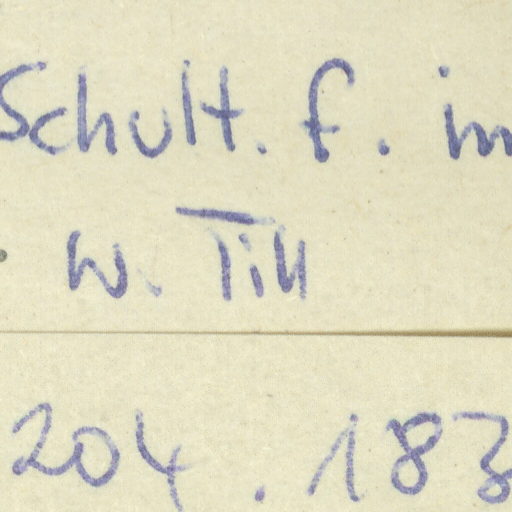 Schult. f. in
W. Till
204. 183